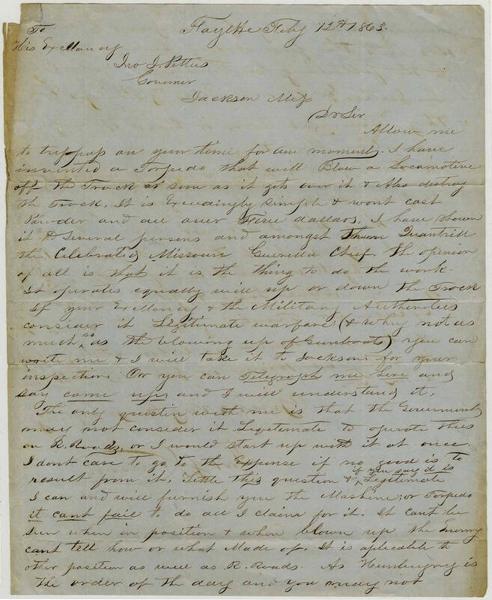 To Fayette Feby 12th 1863.
His Excellency
Jno J. Pettus
Governor
Jackson Miss
Dr Sir
Allow me
to trespass on your time for one moment. I have
invented a Torpedo that will Blow a Locomotive
off the Track as soon as it gets over it & also destroy
the Track. It is Exceedingly simple & wont cost
Powder and all over Five dollars, I have shown
it to Several persons and amongst them Quantrill
the Celebrated Missouri Guerrilla Chief, the opinion
of all is that it is the thing to do the work
It operates equally well up or down the Track
If your Excellency & the Military Authorities
consider it Legitimate warfare (& why not as
much so as the blowing up of Gunboats) you can
write me & I will take it to Jackson for your
inspection Or you can Telegraph me here and
say come up and I will understand it.
The only question with me is that the Government
may not consider it Legitimate to operate this
on R. Roads, or I would start up with it at once
I dont care to go to the Expense if no good is to
result from it, Settle this question & if you say it is Legitimate
I can and will furnish you the Machine or Torpedo
it cant fail to do all I claim for it. It cant be
seen when in position & when blown up the Enemy
cant tell how or what Made of. It is aplicable to
other position as well as R. Roads. As
is the order of the day and you may not